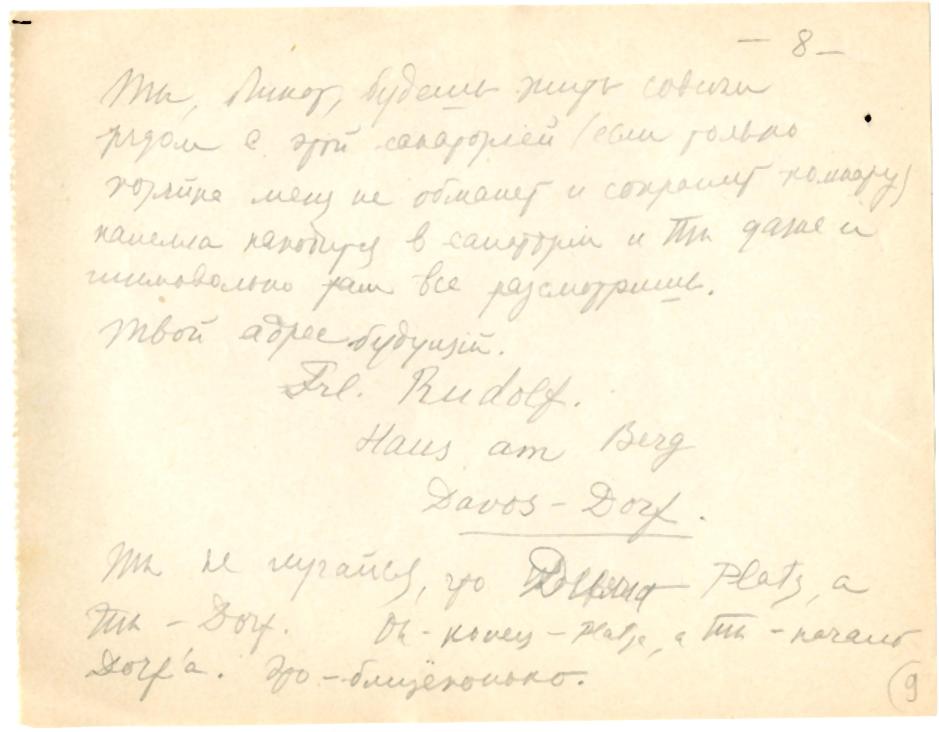 — 8 —
Ты, Пикот, будешь жить совсем
рядом с этой санаторией (если только
хозяйка меня не обманет и сохранит комнату)
капелла находится в санатории и Ты даже и
невольно там все разсмотришь.
Твой адрес будущий.
Frl. Rudolf.
Haus am Berg
Davos-Dorf.
Ты не пугайся, что Platz, а
Ты – Dorf. Он – конец – Platz'a, а Ты – начало
Dorf'a. Это – близёхонько.
9